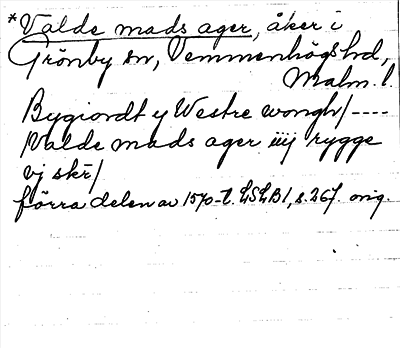 *Valde mads ager, åker i
Grönby sn, Vemmenhögs hd,
Malm. l.
Bygiordt y Westre wongh/----
/Valde mads ager iiij rygge
vj skr/
förra delen av 1570-t. LSLB1, s. 267. orig.